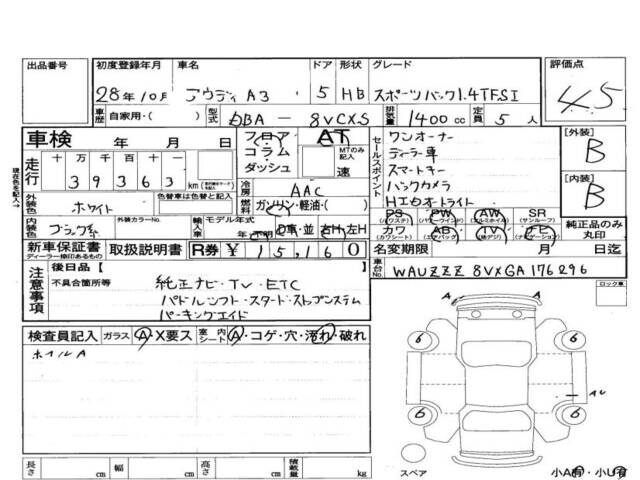 出品番号 初度登録年月 車名 ドア 形状 グレード 評価点
28年10月 アウディ A3 5 HB スポーツバック1.4TFSI 4.5
車歴 自家用・( ) 型式 DBA - 8VCXS 排気量 1400 cc 定員 5 人
車検 年 月 日 フロア AT
コラム・ダッシュ MTのみ記入 速
走行 十万 万 千 百 十 一
39363 km
冷房 AAC
外装色 ホワイト 色替車は色替と記入
燃料 ガソリン・軽油・( )
内装色 ブラック系 外装カラーNo.
輸入車 モデル年式 不明 D車・並 右H・左H
新車保証書 ディーラー捺印あるもの 取扱説明書 R券 ¥ 15,160
セールスポイント
ワンオーナー
ディーラー車
スマートキー
バックカメラ
HIDオートライト
PS (パワステ) PW (パワーウインド) AW (アルミホイル) SR (サンルーフ)
カワ (カワシート) AB (エアバッグ) TV (地デジ) ナビ (ナビゲーション)
純正品のみ丸印
[外装] B
[内装] B
現在色を記入→
名変期限 月 日迄
車台No. WAUZZZ 8VXGA176296
注意事項 後日品【
不具合箇所等
純正ナビ・TV・ETC
パドルシフト・スタートストップシステム
パーキングエイド
検査員記入 ガラス A・X要ス 室内シート A・コゲ・穴・汚れ・破れ
ホイルA
ロック車
6 6
AU
6 6
スペア 小A有・小U有
長さ cm 幅 cm 高さ cm 積載量 kg